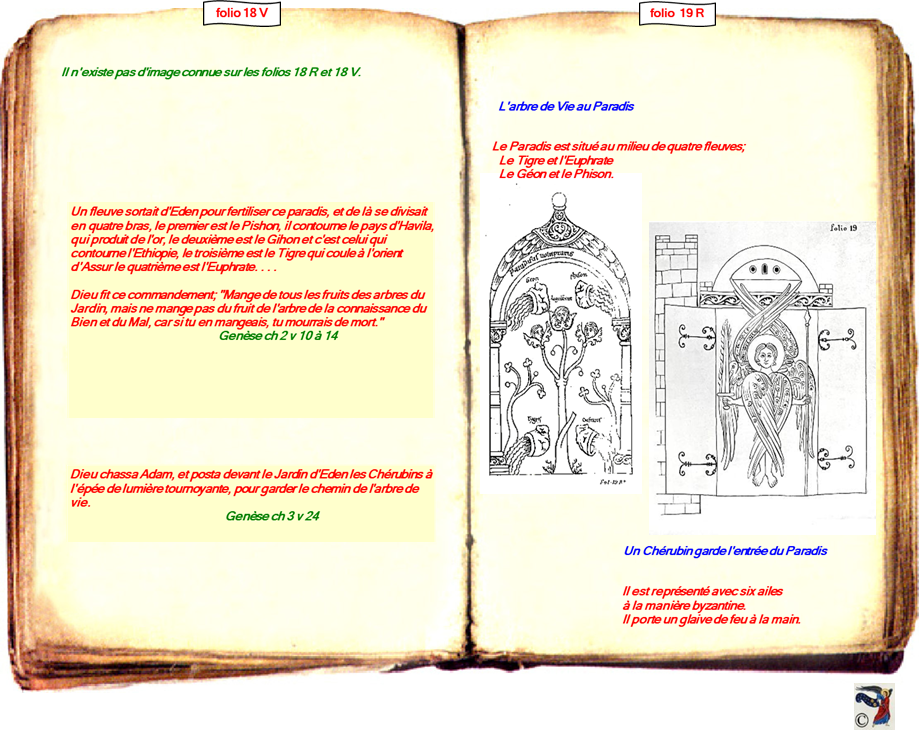 folio 18 V
Il n'existe pas d'image connue sur les folios 18 R et 18 V.
Un fleuve sortait d'Eden pour fertiliser ce paradis, et de là se divisait
en quatre bras, le premier est le Pishon, il contourne le pays d'Havila,
qui produit de l'or, le deuxième est le Gihon et c'est celui qui
contourne l'Ethiopie, le troisième est le Tigre qui coule à l'orient
d'Assur le quatrième est l'Euphrate. . . .
Dieu fit ce commandement; "Mange de tous les fruits des arbres du
Jardin, mais ne mange pas du fruit de l'arbre de la connaissance du
Bien et du Mal, car si tu en mangeais, tu mourrais de mort."
Genèse ch 2 v 10 à 14
Dieu chassa Adam, et posta devant le Jardin d'Eden les Chérubins à
l'épée de lumière tournoyante, pour garder le chemin de l'arbre de
vie.
Genèse ch 3 v 24
folio 19 R
L'arbre de Vie au Paradis
Le Paradis est situé au milieu de quatre fleuves;
Le Tigre et l'Euphrate
Le Géon et le Phison.
folio 19
Un Chérubin garde l'entrée du Paradis
Il est représenté avec six ailes
à la manière byzantine.
Il porte un glaive de feu à la main.
©